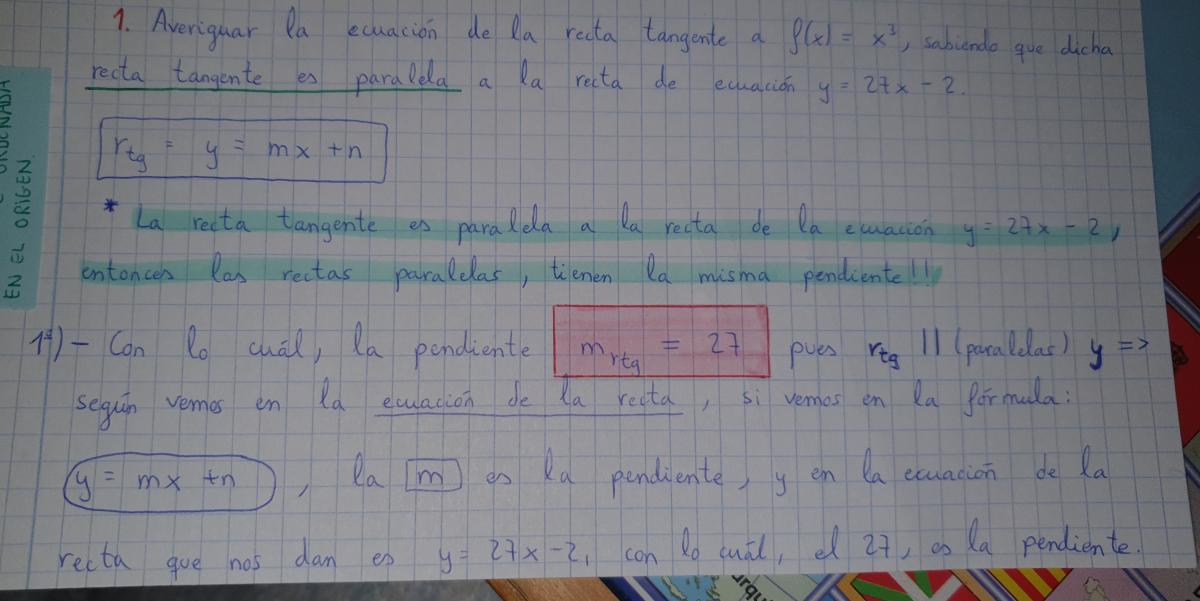 1. Averiguar la ecuación de la recta tangente a f(x) = x³, sabiendo que dicha
recta tangente es paralela a la recta de ecuación y = 27x - 2.
EN EL ORIGEN.
rtg = y = mx + n
* La recta tangente es paralela a la recta de la ecuación y = 27x - 2,
entonces las rectas paralelas, tienen la misma pendiente!!
1º) - Con lo cuál, la pendiente mrtg = 27 pues rtg || (paralelas) y =>
según vemos en la ecuación de la recta, si vemos en la fórmula:
y = mx + n, la m es la pendiente, y en la ecuación de la
recta que nos dan es y = 27x - 2, con lo cuál, el 27, es la pendiente.